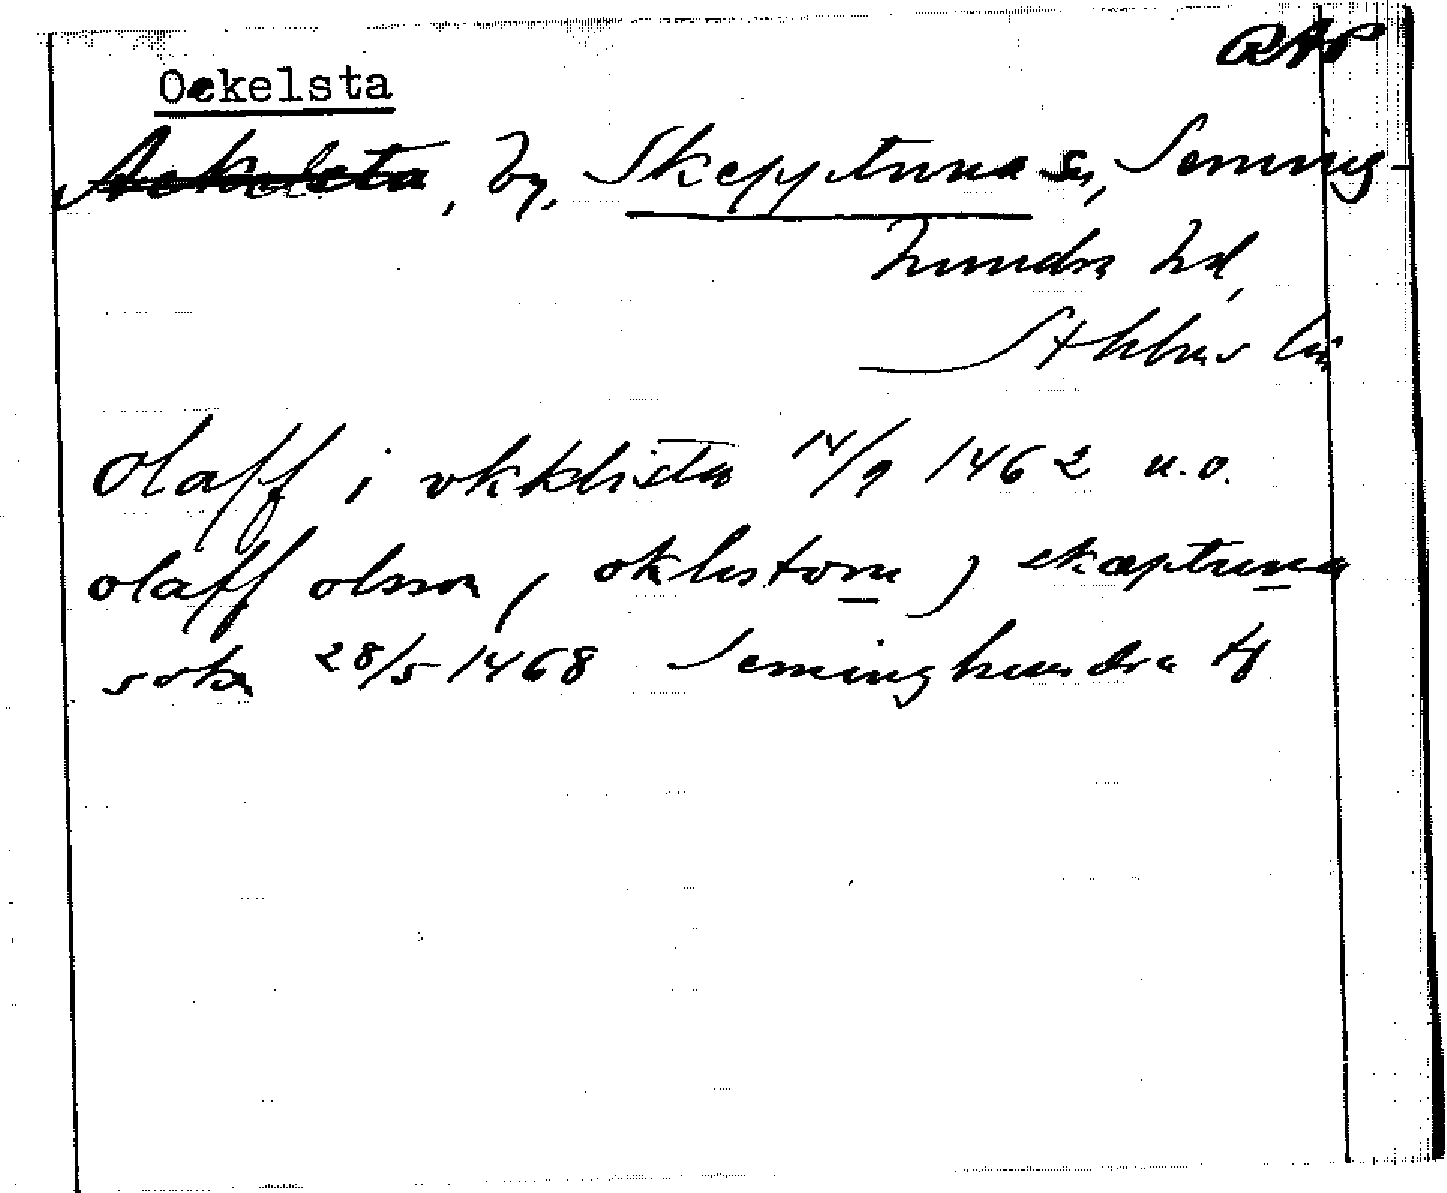 RAP
Oekelsta
Aekelsta, by, Skepptuna sn, Seming-
hundra hd,
Sthlms län
Olaff i vkklista 14/9 1462 u.o.
olaff olsson i oklistom j skæptuna
sokn 28/5 1468 Seminghundra